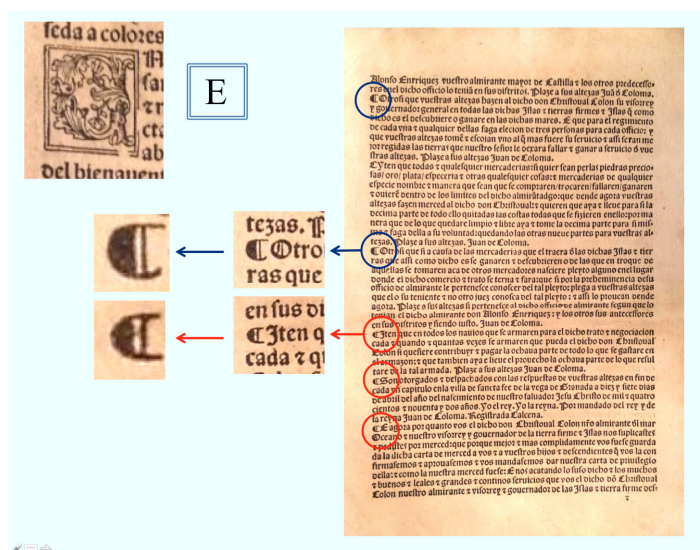 ſeda a colores
del bienauent
E
tezas. P
¶ Otro
ras que
en ſus di
¶ Iten q
cada ⁊ q
Alonſo Enrriquez vueſtro almirante mayor de Caſtilla ⁊ los otros predeceſſo-
res en el dicho officio lo tenia en ſus diſtritos. Plaze a ſus altezas Juã d̃ Coloma.
¶ Otroſi que vueſtras altezas hazen al dicho don Chriſtoual Colon ſu viſorrey
y gouernador general en todas las dichas Iſlas ⁊ tierras firmes ⁊ Iſlas q̃ como
dicho es el deſcubriere o ganare en las dichas mares. E que para el regimiento
de cada vna ⁊ qualquier dellas faga elecion de tres perſonas para cada officio: y
que vueſtras altezas tomẽ ⁊ eſcojan vno al q̃ mas fuere ſu ſeruicio ⁊ aſſi ſeran me
jor regidas las tierras que nueſtro ſeñor le derara fallar ⁊ ganar a ſeruicio d̃ vue
ſtras altezas. Plaze a ſus altezas Juan de Coloma.
¶ Yten que todas ⁊ qualeſquier mercaderias: ſi quier ſean perlas piedras precio-
ſas/oro/plata/eſpeceria ⁊ otras qualeſquier coſas: ⁊ mercaderias de qualquier
eſpecie nombre ⁊ manera que ſean que ſe compraren/trocaren/fallaren/ganaren
⁊ ouierẽ dentro de los limites del dicho almirãtadgo: que dende agora vueſtras
altezas fazen merced al dicho don Chriſtoual: ⁊ quieren que aya ⁊ lleue para ſi la
decima parte de todo ello quitadas las coſtas todas que ſe fizieren en ello: por ma
nera que de lo que quedare limpio ⁊ libre aya ⁊ tome la decima parte para ſi miſ-
mo ⁊ faga della a ſu voluntad: quedando las otras nueue partes para vueſtras al-
tezas. Plaze a ſus altezas. Juan de Coloma.
¶ Otroſi que ſi a cauſa de las mercaderias que el traera d̃ las dichas Iſlas ⁊ tier
ras que aſſi como dicho es ſe ganaren ⁊ deſcubrieren o de las que en troque de
aquellas ſe tomaren aca de otros mercadores naſciere pleyto alguno en el lugar
donde el dicho comercio ⁊ trato ſe terna ⁊ fara: que ſi por la prehemineneia deſu
officio de almirante le perteneſce conoſcer del tal pleyto: plega a vueſtras altezas
que el o ſu teniente ⁊ no otro juez conoſca del tal pleyto: ⁊ aſſi lo prouean dende
agora. Plaze a ſus altezas ſi perteneſce al dicho officio de almirante ſegun que lo
tenian el dicho almirante don Alonſo Enrriquez: y los otros ſus anteceſſores
en ſus diſtritos y ſiendo iuſto. Juan de Coloma.
¶ Iten que en todos los nauios que ſe armaren para el dicho trato ⁊ negociacion
cada ⁊ quando ⁊ quantas vezes ſe armaren que pueda el dicho don Chriſtoual
Colon ſi quiſiere contribuyr ⁊ pagar la ochaua parte de todo lo que ſe gaſtare en
el armazon: ⁊ que tambien aya ⁊ lieue el prouecho la ochaua parte de lo que reſul
tare de la tal armada. Plaze a ſus altezas Juan de Coloma.
¶ Son otorgados ⁊ deſpachados con las reſpueſtas de vueſtras altezas en fin de
cada vn capitulo en la villa de ſancta fee de la vega de Granada a diez y ſiete dias
de abril del año del naſcimiento de nueſtro ſaluador Jeſu Chriſto de mil ⁊ quatro
cientos ⁊ nouenta y dos años. Yo el rey. Yo la reyna. Por mandado del rey y de
la reyna Juan de Coloma. Regiſtrada Calcena.
¶ E agora por quanto vos el dicho don Chriſtoual Colon nr̃o almirante d̃l mar
Oceano ⁊ nueſtro viſorrey ⁊ gouernador de la tierra firme ⁊ Iſlas nos ſuplicaſtes
⁊ pediſtes por merced: que porque mejor ⁊ mas complidamente vos fueſe guarda
da la dicha carta de merced a vos ⁊ a vueſtros hijos ⁊ deſcendientes q̃ vos la con
firmaſemos ⁊ aprouaſemos ⁊ vos mandaſemos dar nueſtra carta de priuilegio
della: ⁊ como la nueſtra merced fueſe: E nos acatando lo ſuſo dicho ⁊ los muchos
⁊ buenos ⁊ leales ⁊ grandes ⁊ continos ſeruicios que vos el dicho dõ Chriſtoual
Colon nueſtro almirante ⁊ viſorrey ⁊ gouernador de las Iſlas ⁊ tierra firme deſ-